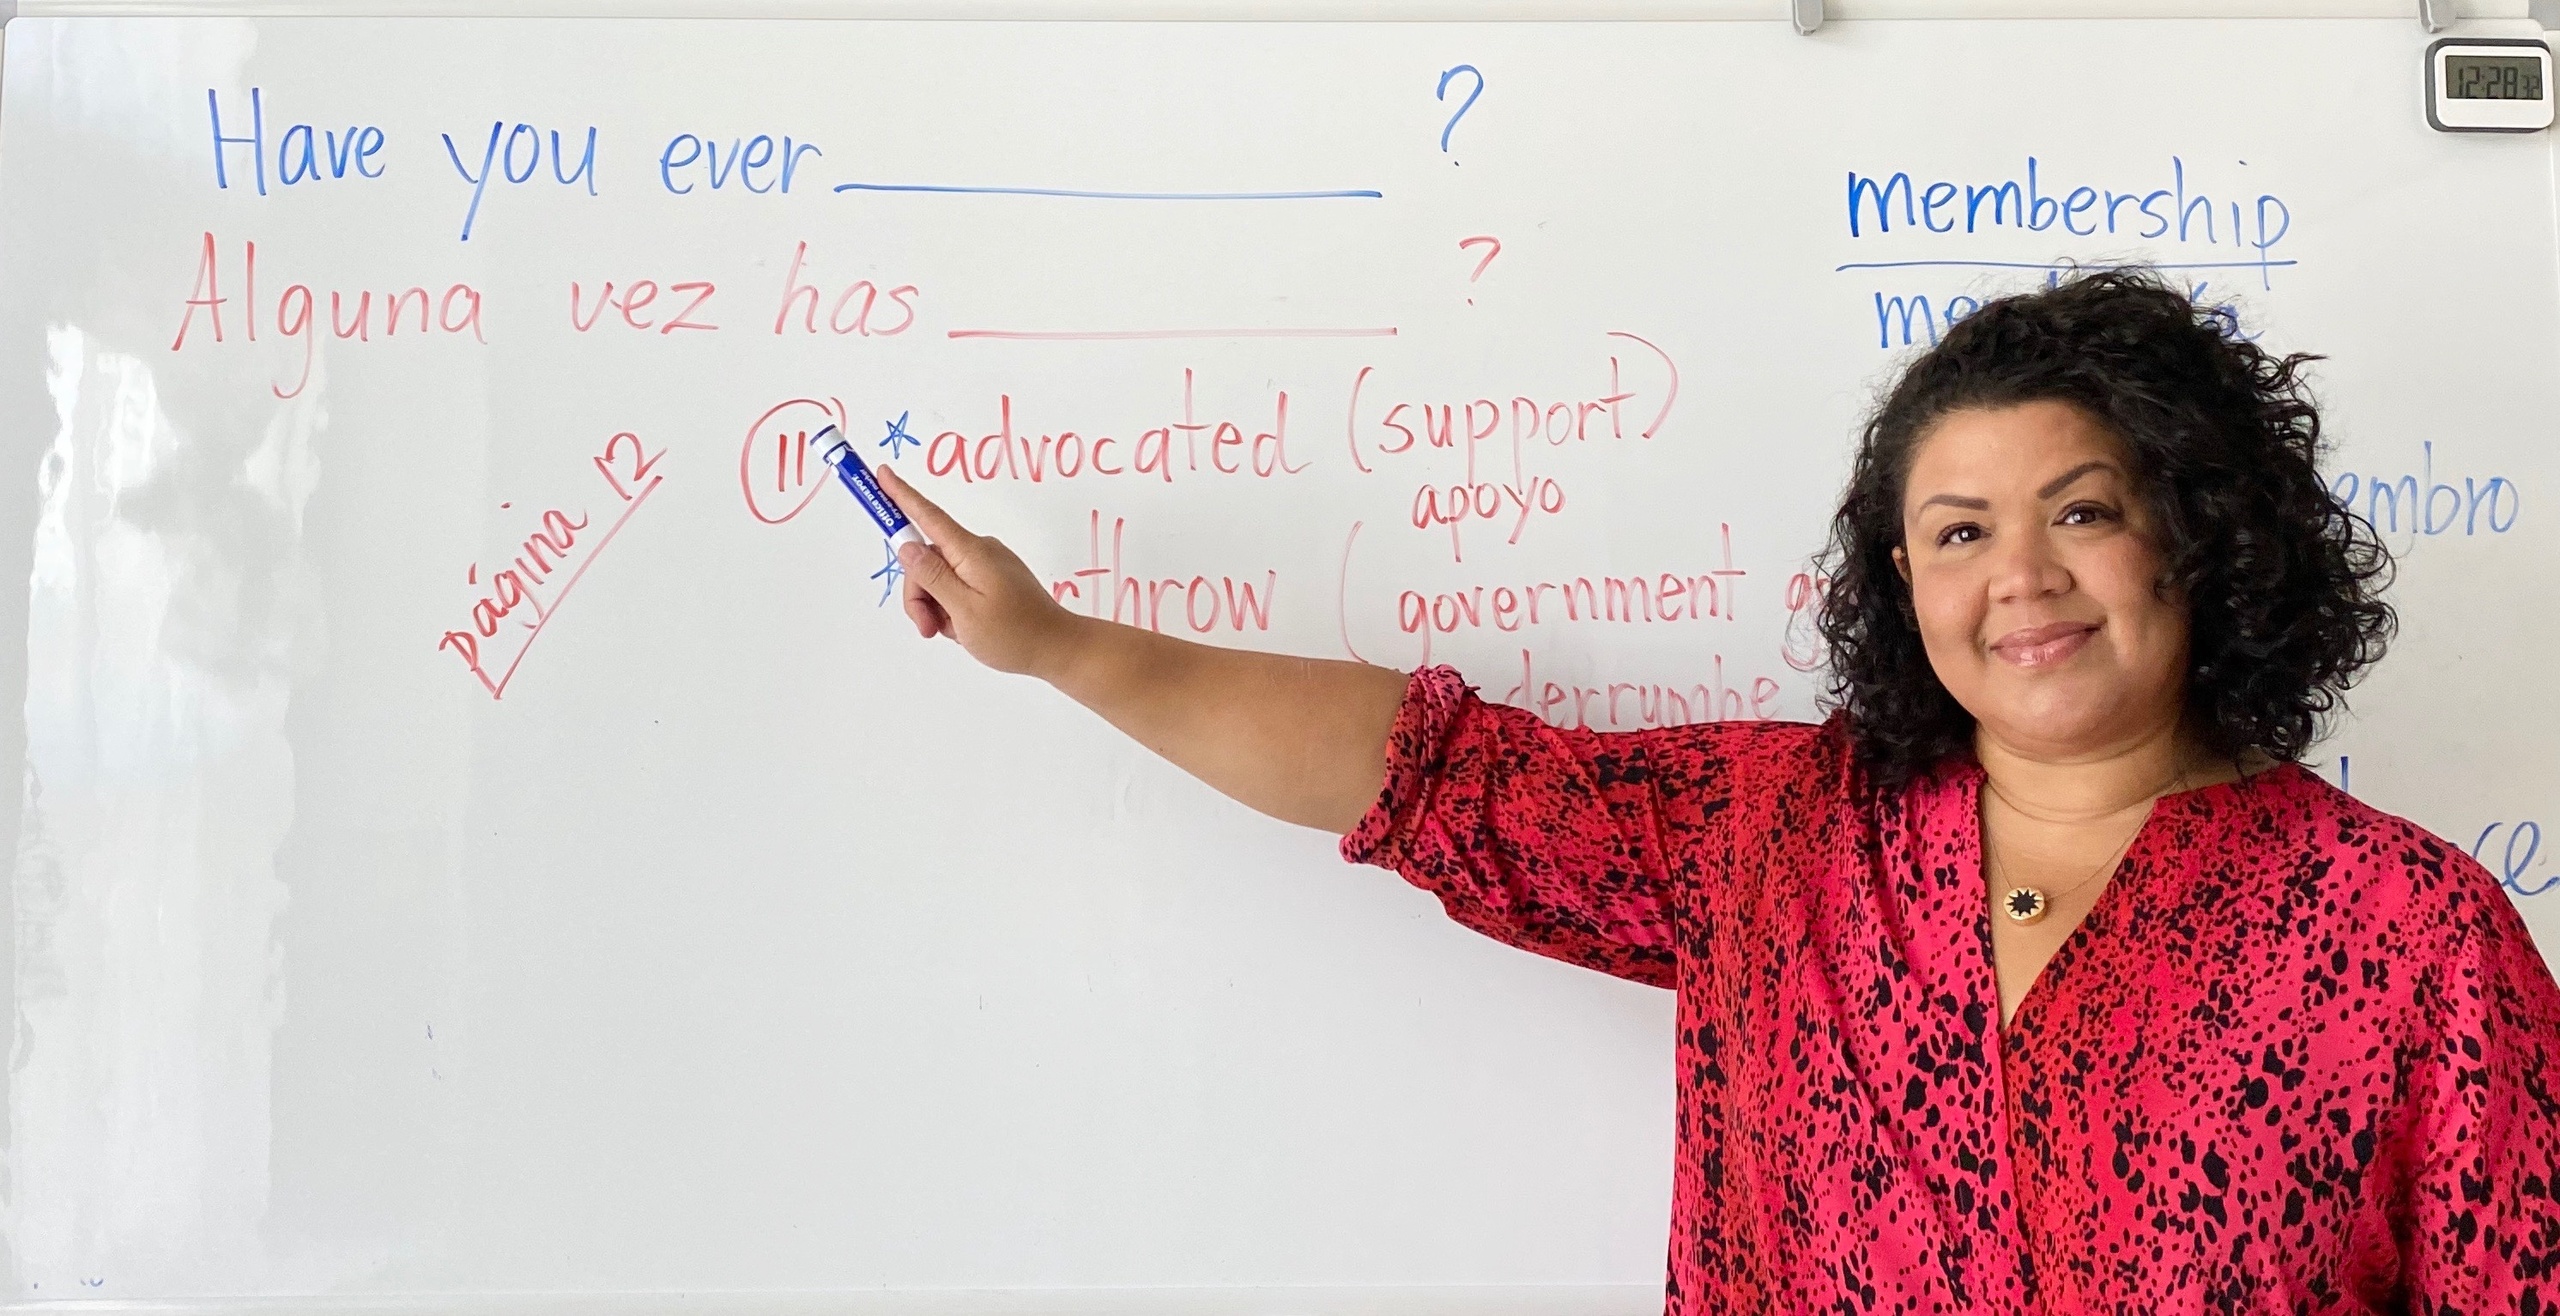 Have you ever ________ ?
Alguna vez has ________ ?
página 12
11 *advocated (support)
apoyo
(government
derrumbe
membership
12:28 32
OFFICE DEPOT